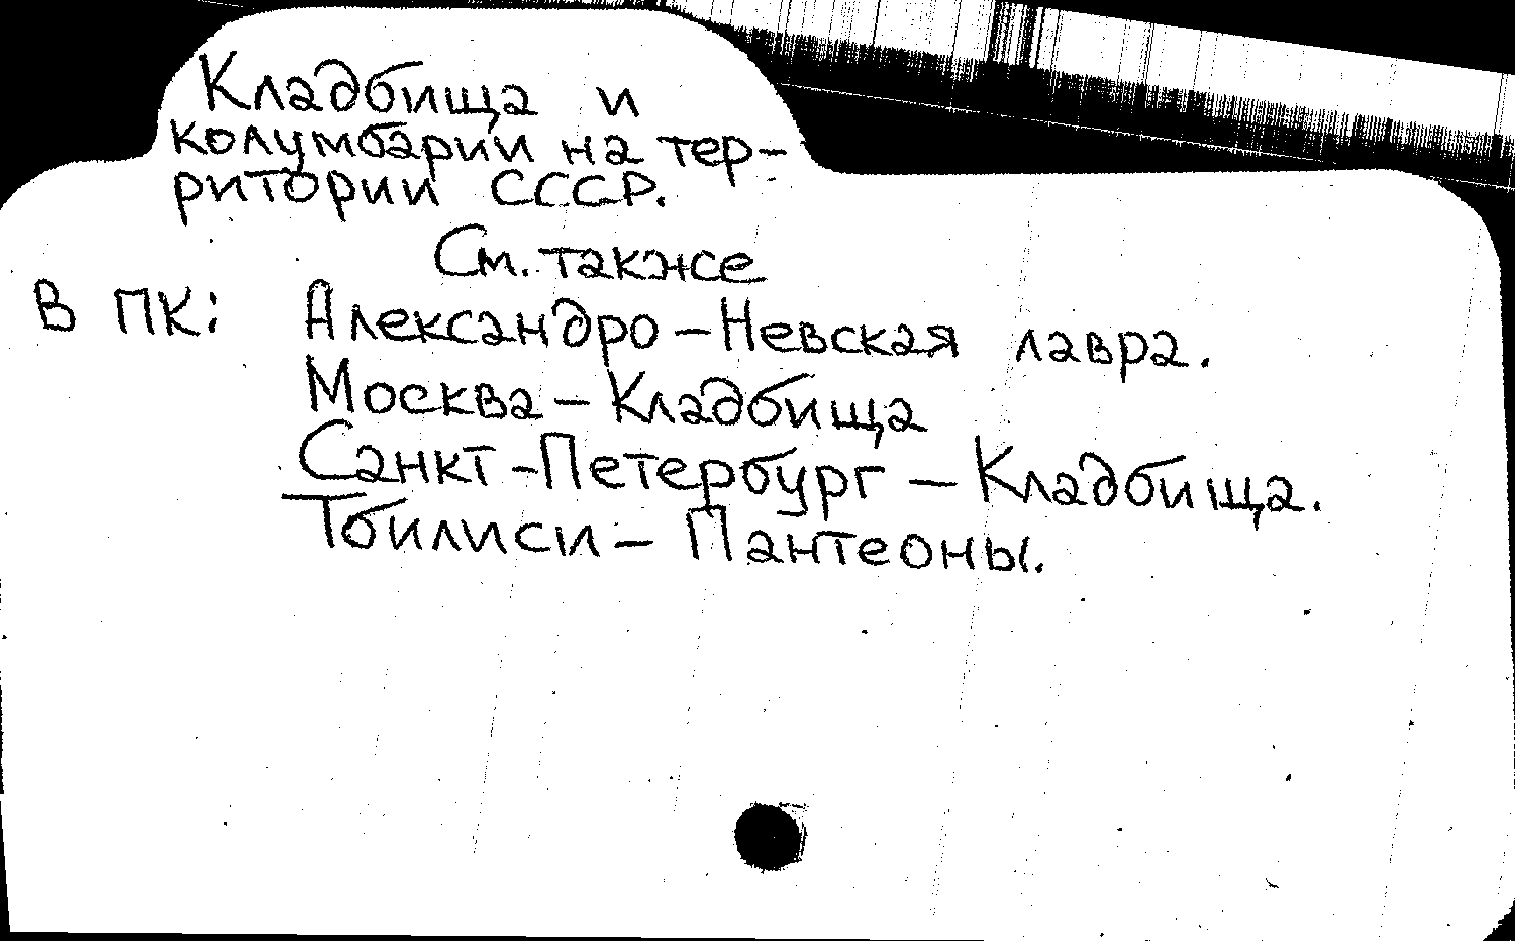 Кладбища и
колумбарии на тер-
ритории СССР.
См. также
в ПК: Александро-Невская лавра.
Москва - Кладбища
Санкт-Петербург - Кладбища.
Тбилиси - Пантеоны.